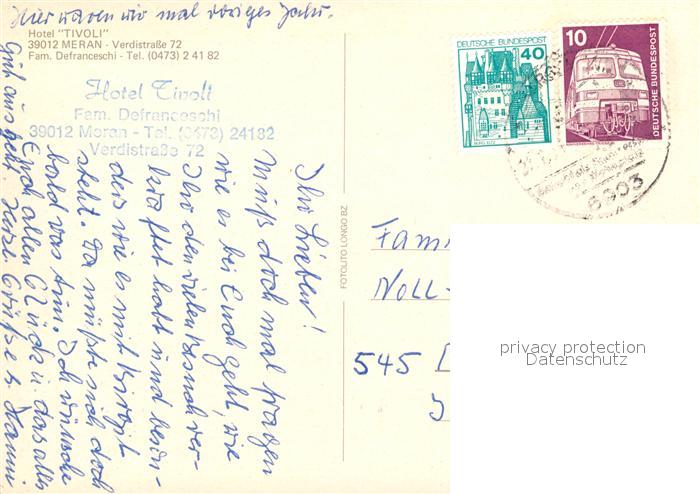 Hier waren wir mal voriges Jahr.
Hotel "TIVOLI"
39012 MERAN - Verdistraße 72
Fam. Defranceschi - Tel. (0473) 2 41 82
Hotel Tivoli
Fam. Defranceschi
39012 Meran - Tel. (0473) 24182
Verdistraße 72
Ihr Lieben!
Muß doch mal fragen
wie es bei Euch geht, wie
Ihr den vielen Besuch ver-
kraftet habt und beson-
ders wie es mit Birgit
steht. Da müßte sich doch
bald was tun. Ich wünsche
Euch allen Glück u. das alles
gut aus geht. Herzl. Grüße
FOTOLITO LONGO BZ
DEUTSCHE BUNDESPOST
40
BURG ELTZ
10
DEUTSCHE BUNDESPOST
6903
Fam
Noll-
545
privacy protection
Datenschutz